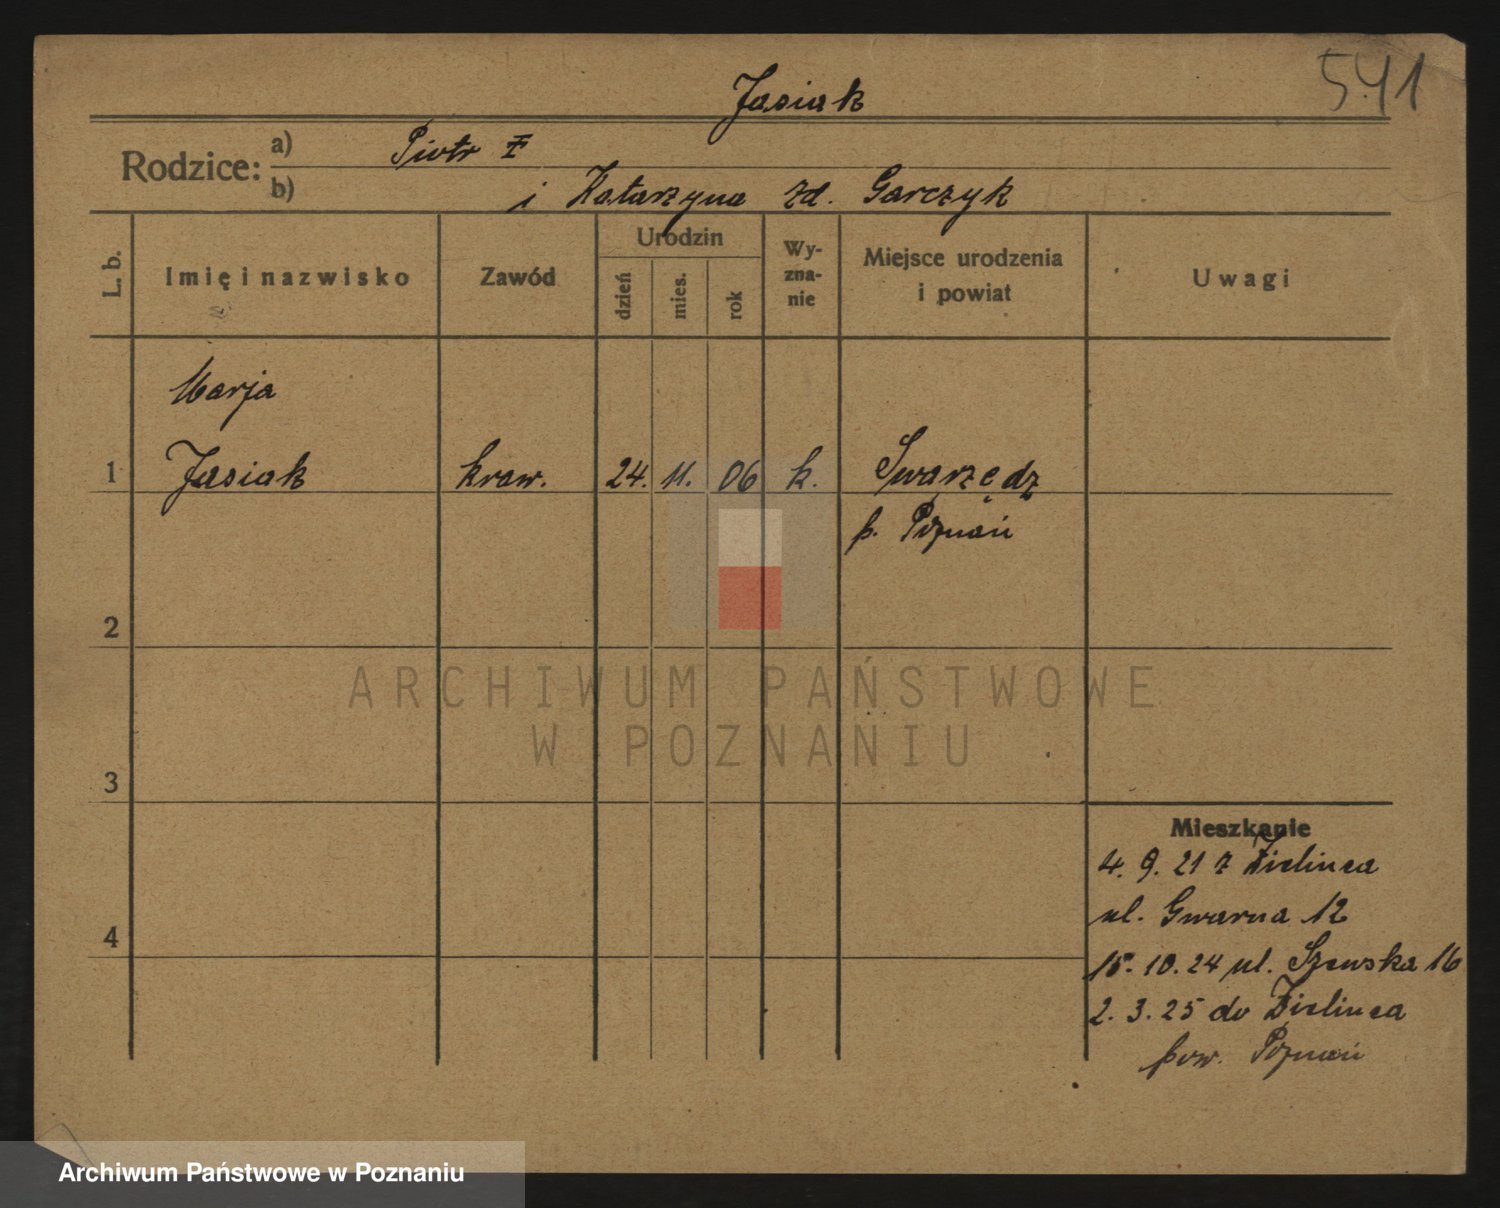 541
Jasiak
Rodzice: a) Piotr
b) i Katarzyna zd. Garczyk
L. b.
Imię i nazwisko
Zawód
Urodzin
dzień
mies.
rok
Wy-
zna-
nie
Miejsce urodzenia
i powiat
Uwagi
Marja
1 Jasiak kraw. 24. 11. 06 k. Swarzędz
p. Poznań
2
3
4
Mieszkanie
4. 9. 21 z Zielińca
ul. Gwarna 12
15. 10. 24 ul. Szewska 16
2. 3. 25 do Zielińca
pow. Poznań
ARCHIWUM PAŃSTWOWE
W POZNANIU
Archiwum Państwowe w Poznaniu